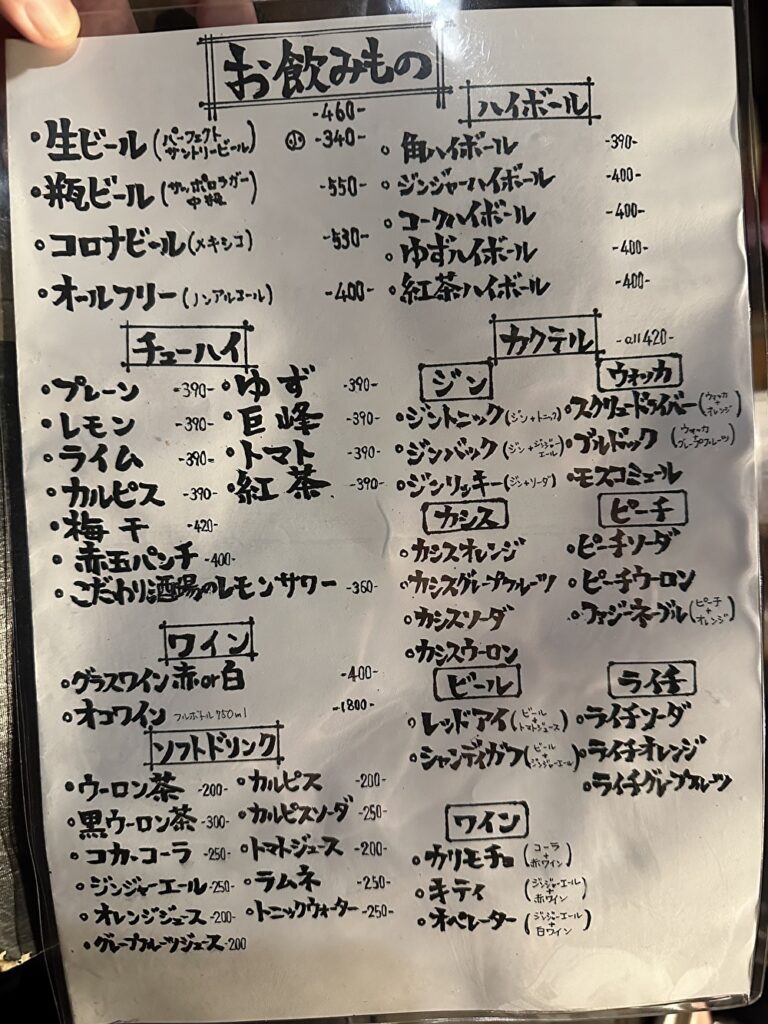 お飲みもの
-460-
・生ビール(パーフェクトサントリービール) ㊙小 -340-
・瓶ビール(サッポロラガー中瓶) -550-
・コロナビール(メキシコ) -530-
・オールフリー(ノンアルエール) -400-
ハイボール
・角ハイボール -390-
・ジンジャーハイボール -400-
・コークハイボール -400-
・ゆずハイボール -400-
・紅茶ハイボール -400-
チューハイ
・プレーン -390-
・レモン -390-
・ライム -390-
・カルピス -390-
・梅干 -420-
・赤玉パンチ -400-
・こだわり酒場のレモンサワー -360-
・ゆず -390-
・巨峰 -390-
・トマト -390-
・紅茶 -390-
ワイン
・グラスワイン赤or白 -400-
・オコワイン フルボトル750ml -1800-
ソフトドリンク
・ウーロン茶 -200-
・黒ウーロン茶 -300-
・コカ・コーラ -250-
・ジンジャーエール -250-
・オレンジジュース -200-
・グレープフルーツジュース -200
・カルピス -200-
・カルピスソーダ -250-
・トマトジュース -200-
・ラムネ -250-
・トニックウォーター -250-
カクテル -all420-
ジン
・ジントニック(ジン+トニック)
・ジンバック(ジン+ジンジャーエール)
・ジンリッキー(ジン+ソーダ)
ウォッカ
・スクリュードライバー(ウォッカ+オレンジ)
・ブルドック(ウォッカ グレープフルーツ)
・モスコミュール
カシス
・カシスオレンジ
・カシスグレープフルーツ
・カシスソーダ
・カシスウーロン
ピーチ
・ピーチソーダ
・ピーチウーロン
・ファジーネーブル(ピーチ+オレンジ)
ビール
・レッドアイ(ビール+トマトジュース)
・シャンディガフ(ビール+ジンジャーエール)
ライチ
・ライチソーダ
・ライチオレンジ
・ライチグレープフルーツ
ワイン
・カリモチョ(コーラ+赤ワイン)
・キティ(ジンジャーエール+赤ワイン)
・オペレーター(ジンジャーエール+白ワイン)